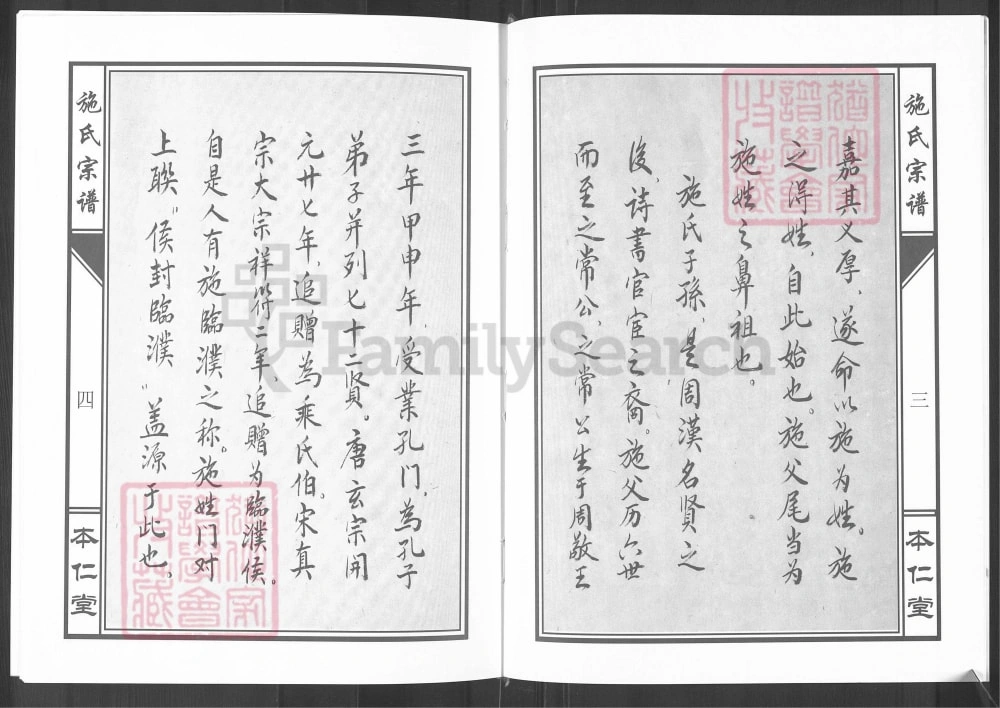 施氏宗谱
三
本仁堂
嘉其义厚，遂命以施为姓。施
之得姓，自此始也。施父尾当为
施姓之鼻祖也。
施氏子孫，是周漢名贤之
後，诗書官宦之裔。施父历六世
而至之常公，之常公生于周敬王
施氏宗谱
四
本仁堂
三年甲申年，受業孔门，為孔子
弟子并列七十二贤。唐玄宗開
元廿七年，追贈為乘氏伯。宋真
宗大宗祥符二年，追贈为臨濮侯。
自是人有施臨濮之称。施姓门对
上聯“侯封臨濮”盖源于此也、
FamilySearch